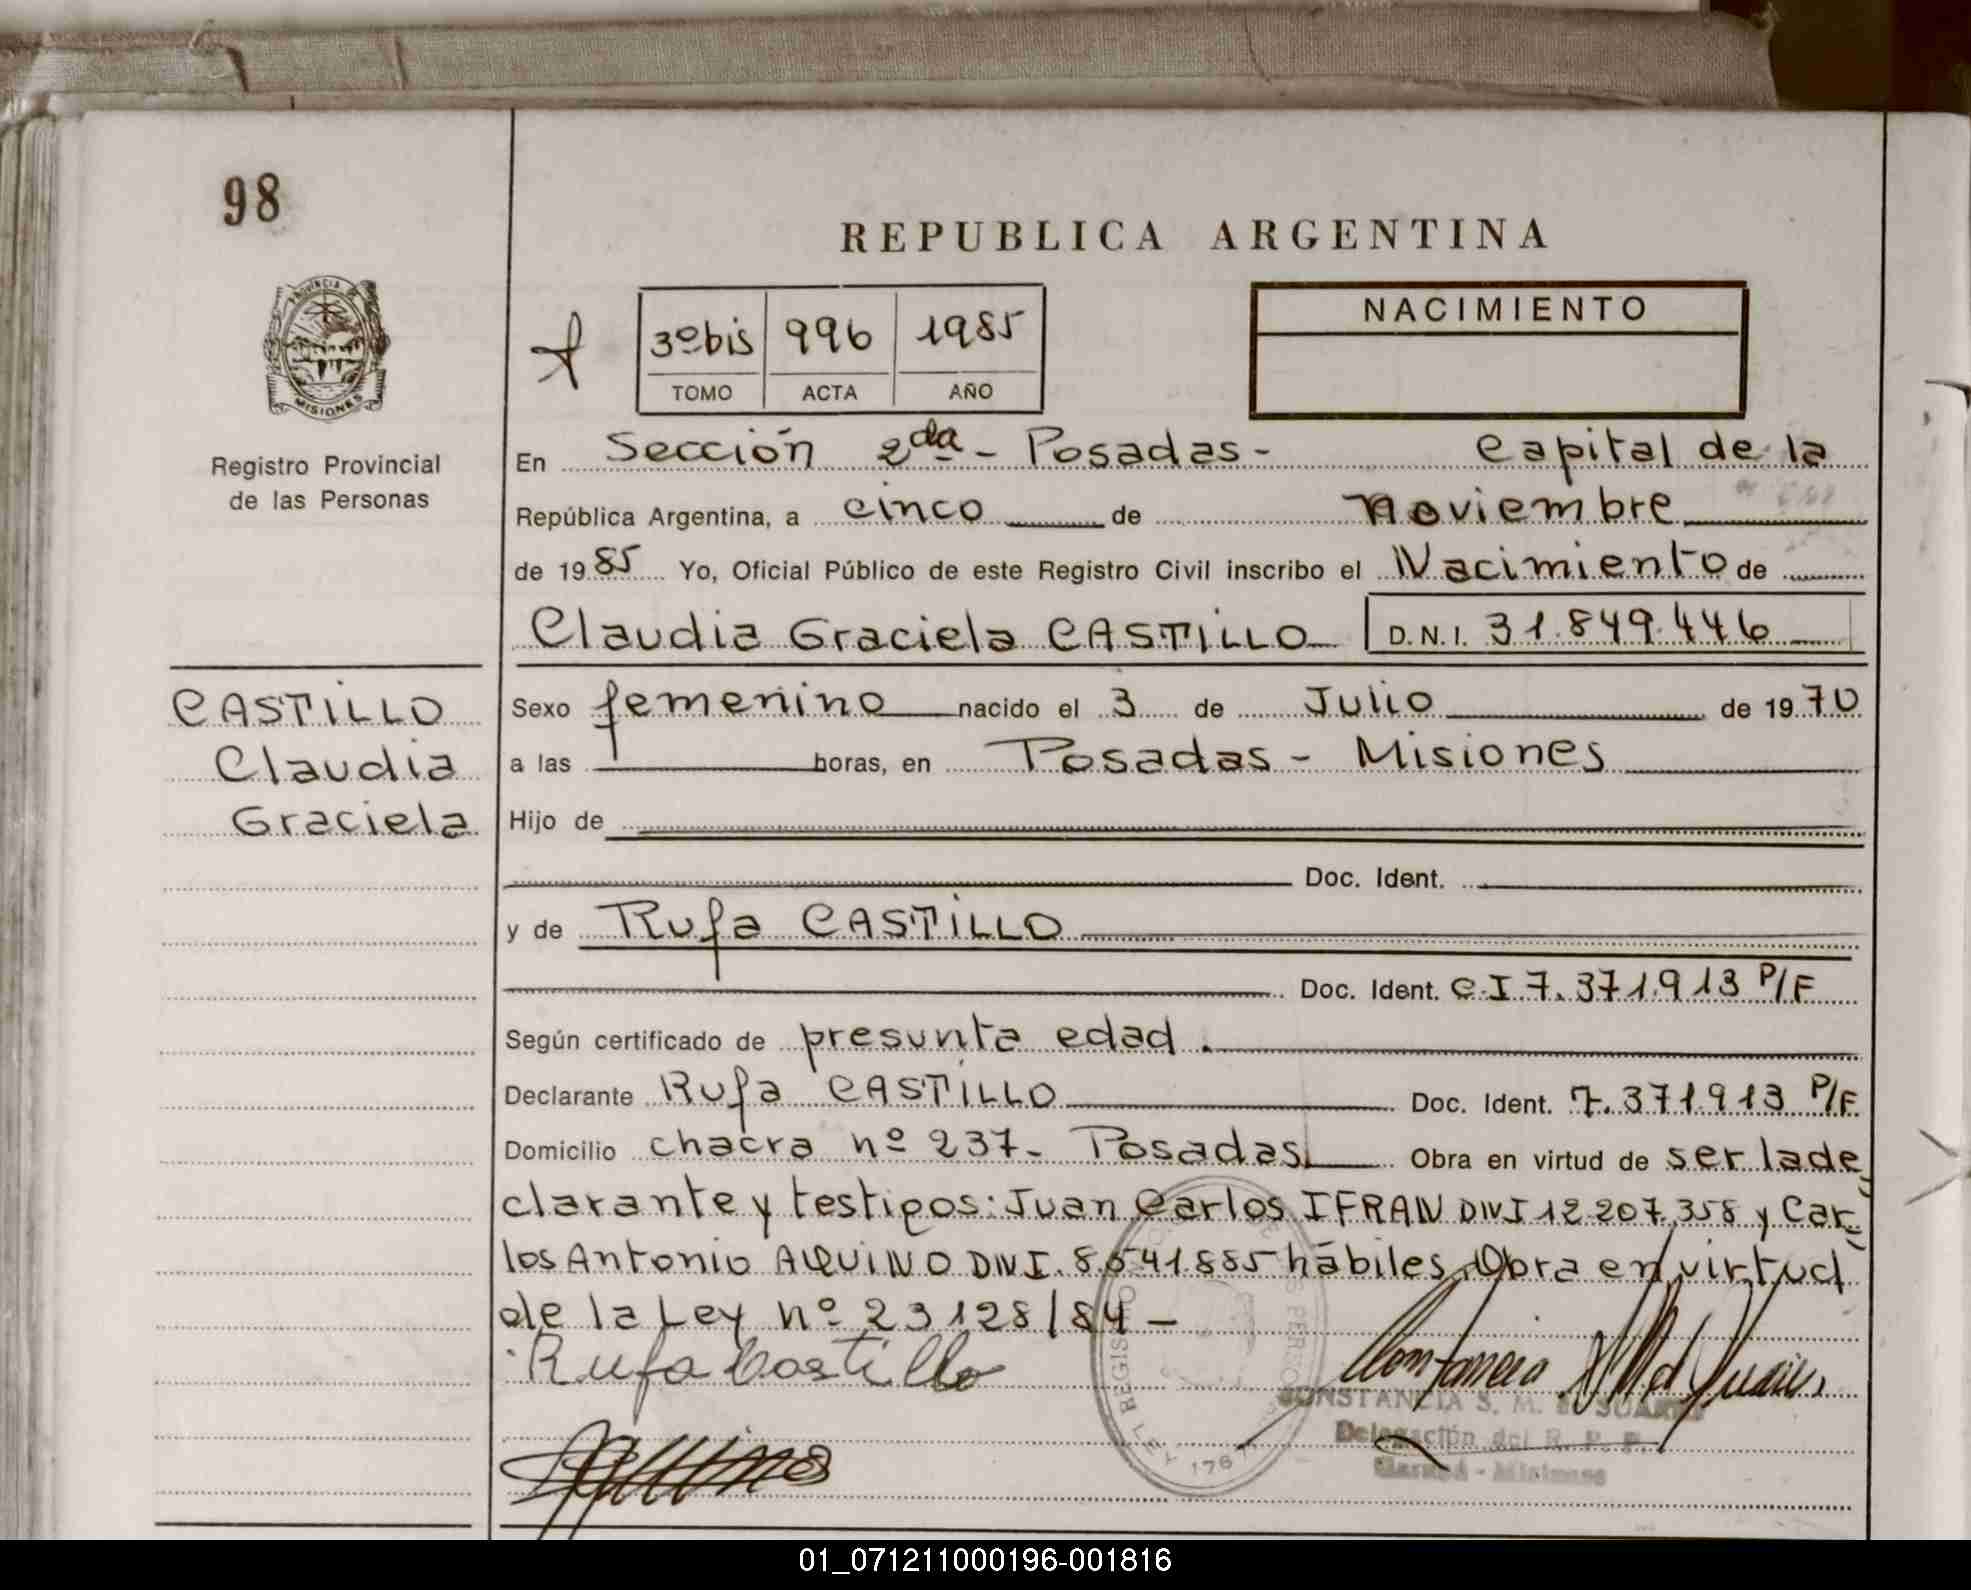 98
REPUBLICA ARGENTINA
PROVINCIA DE
MISIONES
3º bis 996 1985
TOMO ACTA AÑO
NACIMIENTO
Registro Provincial
de las Personas
En Sección 2da - Posadas - Capital de la
República Argentina, a cinco de Noviembre
de 1985 Yo, Oficial Público de este Registro Civil inscribo el Nacimiento de
Claudia Graciela CASTILLO D.N.I. 31.849.446
CASTILLO
Claudia
Graciela
Sexo femenino nacido el 3 de Julio de 1970
a las horas, en Posadas - Misiones
Hijo de
Doc. Ident.
y de Rufa CASTILLO
Doc. Ident. C.I 7.371.913 P/F
Según certificado de presunta edad.
Declarante Rufa CASTILLO Doc. Ident. 7.371.913 P/F
Domicilio chacra nº 237- Posadas Obra en virtud de ser la de
clarante y testigos: Juan Carlos IFRAN DNI 12.207.358 y Car-
los Antonio AQUINO DNI. 8.541.885 hábiles. Obra en virtud
de la Ley nº 23128/84 -
Rufa Castillo
CONSTANCIA S. M. SUAREZ
Delegación del R. P. P.
Misiones
REGISTRO
LEY 1767
01_071211000196-001816